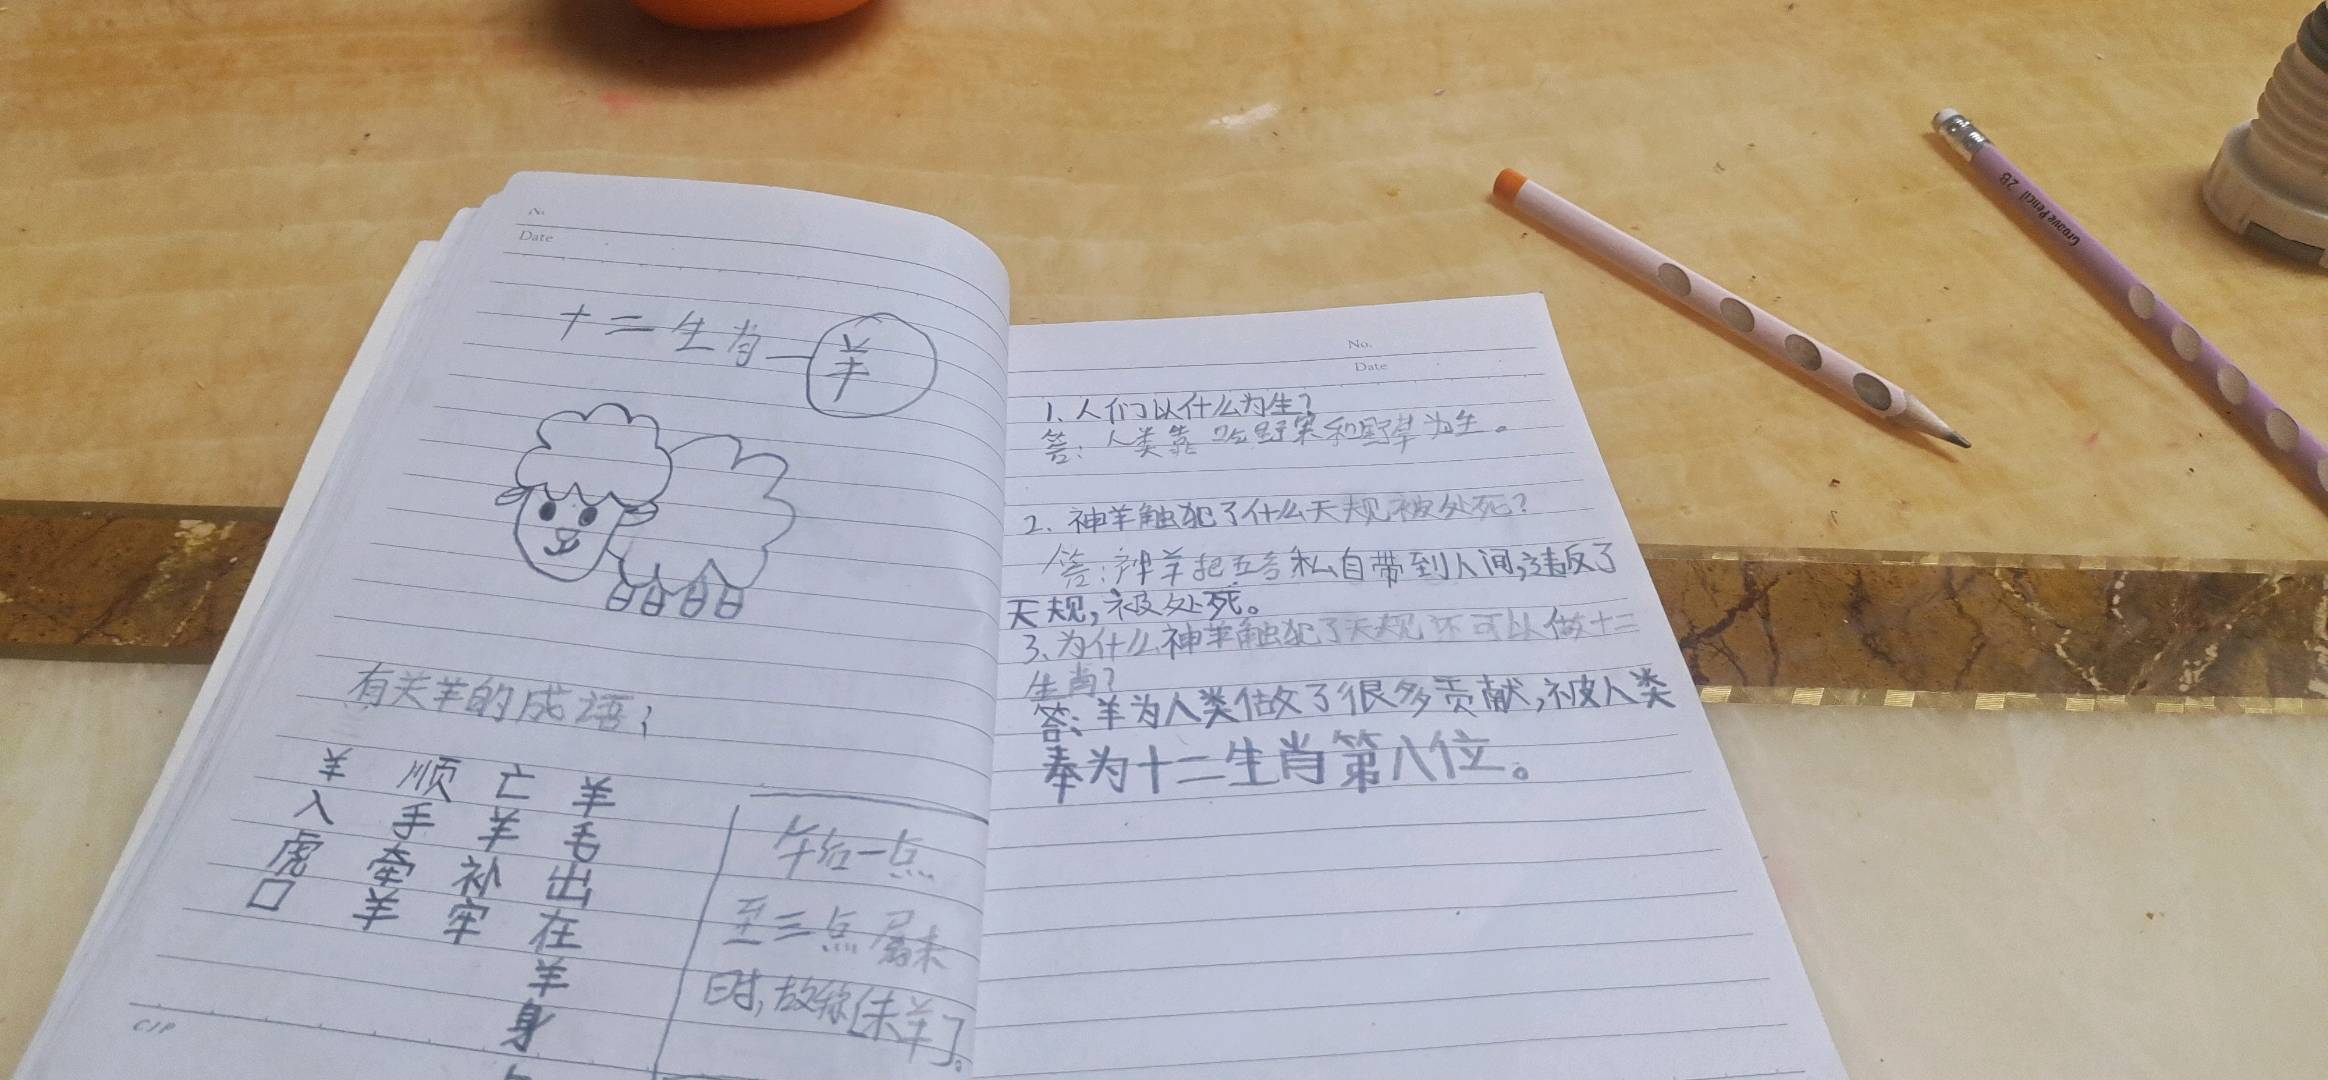 No
Date
十二生肖—羊
有关羊的成语:
羊毛出在羊身
亡羊补牢
顺手牵羊
羊入虎口
午后一点
至三点属未
时,故称[未羊]。
CIP
No.
Date
1、人们以什么为生?
答:人类靠吃野果和野草为生。
2、神羊触犯了什么天规被处死?
答:神羊把五谷私自带到人间,违反了
天规,被处死。
3、为什么神羊触犯了天规还可以做十二
生肖?
答:羊为人类做了很多贡献,被人类
奉为十二生肖第八位。
Groove Pencil 2B